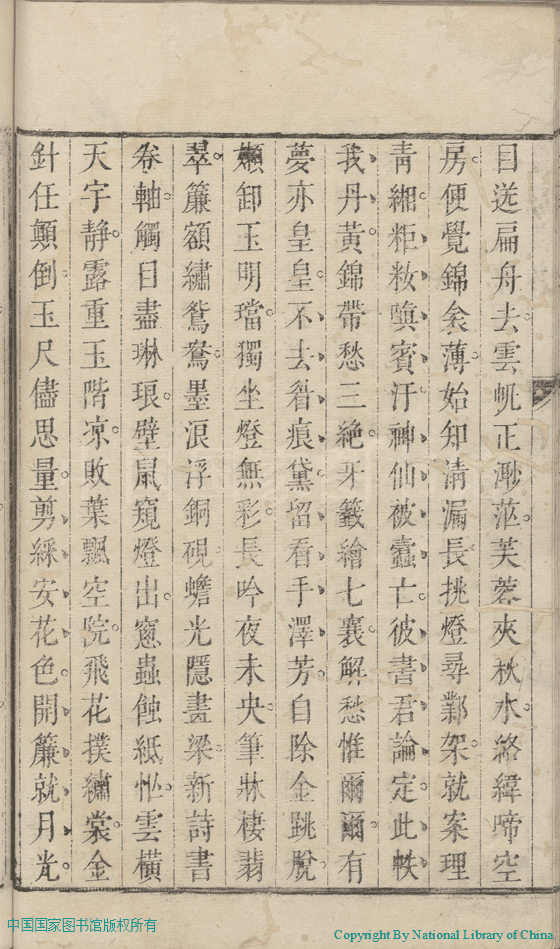 目送扁舟去雲帆正渺茫芙蓉夾秋水絡緯啼空
房便覺錦衾薄始知清漏長挑燈尋鄴架就案理
青緗粔籹嗔賓汙神仙被蠹亡彼書君論定此帙
我丹黃錦帶愁三絕牙籤繪七襄解愁惟爾爾有
夢亦皇皇不去眉痕黛留看手澤芳自除金跳脫
嬾卸玉明璫獨坐燈無彩長吟夜未央筆牀棲翡
翠簾額繡鴛鴦墨淚浮銅硯蟾光隱畫梁新詩書
卷軸觸目盡琳琅壁鼠窺燈出窻蟲蝕紙忙雲橫
天宇靜露重玉階凉敗葉飄空院飛花撲繡裳金
針任顛倒玉尺儘思量剪綵安花色開簾就月光
中国国家图书馆版权所有
Copyright By National Library of China